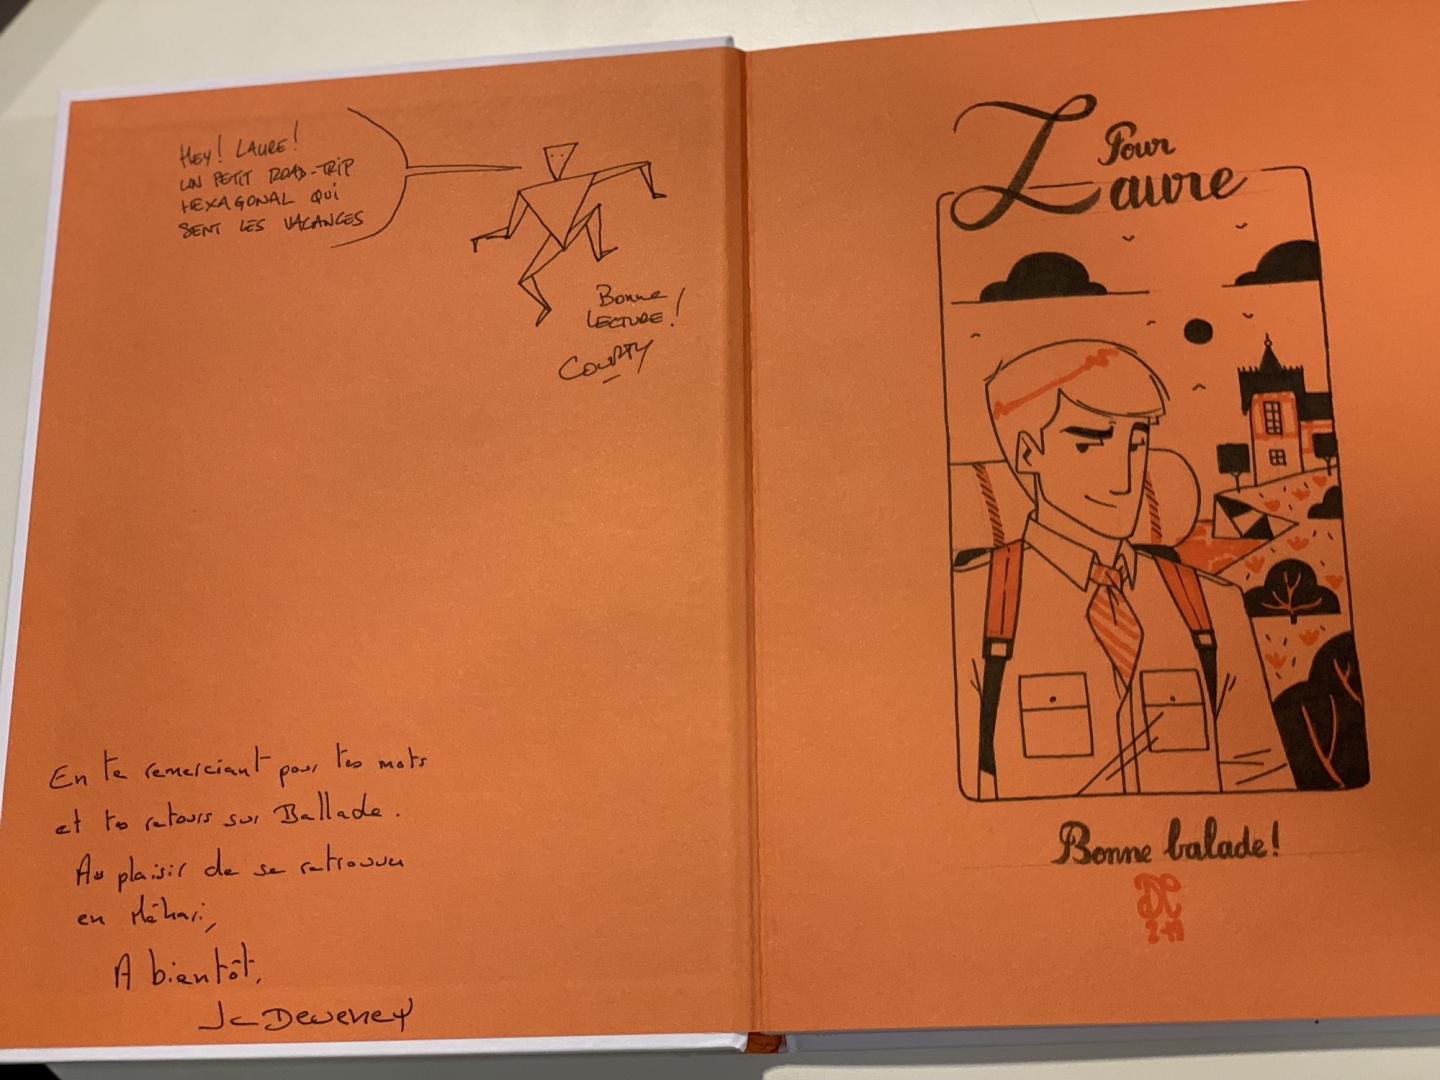 HEY! LAURE!
UN PETIT ROAD-TRIP
HEXAGONAL QUI
SENT LES VACANCES
Bonne
LECTURE!
COURTY
En te remerciant pour tes mots
et tes retours sur Ballade.
Au plaisir de se retrouver
en Méhari,
A bientôt,
JC Deveney
Pour
Laure
Bonne balade!